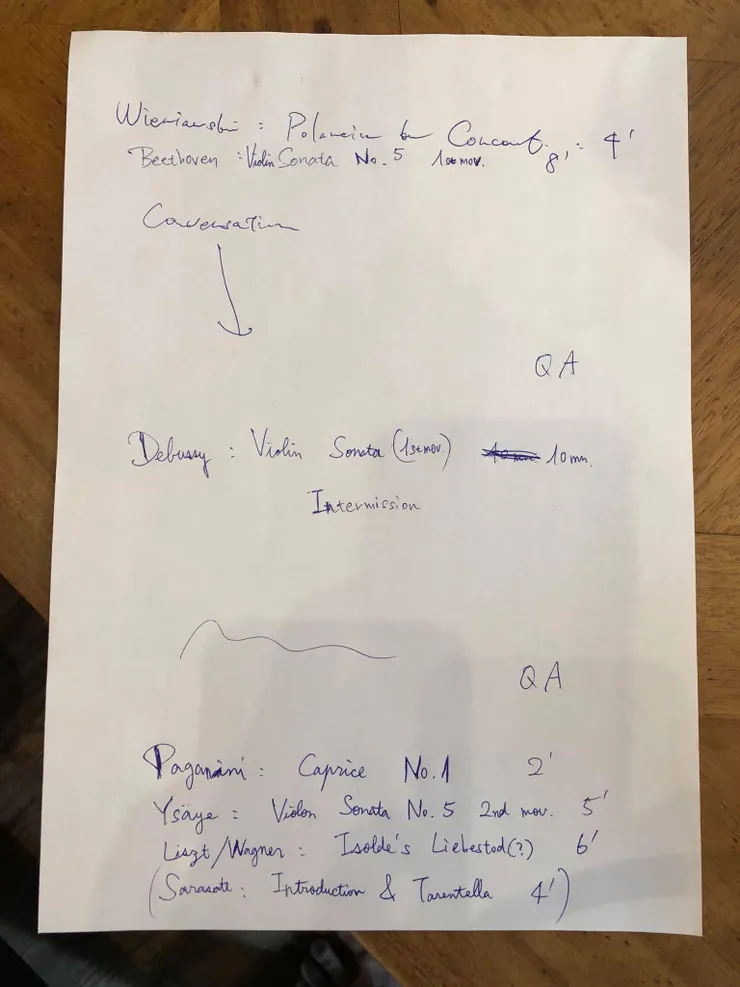 Wieniawski : Polonaise de Concert : 4'
Beethoven : Violin Sonata No. 5 1st mov. 8'
Conversation
QA
Debussy : Violin Sonata (1st mov.) 10 mn.
Intermission
QA
Paganini : Caprice No. 1 2'
Ysäye : Violon Sonata No. 5 2nd mov. 5'
Liszt/Wagner : Isolde's Liebestod(?) 6'
(Sarasate : Introduction & Tarentella 4')